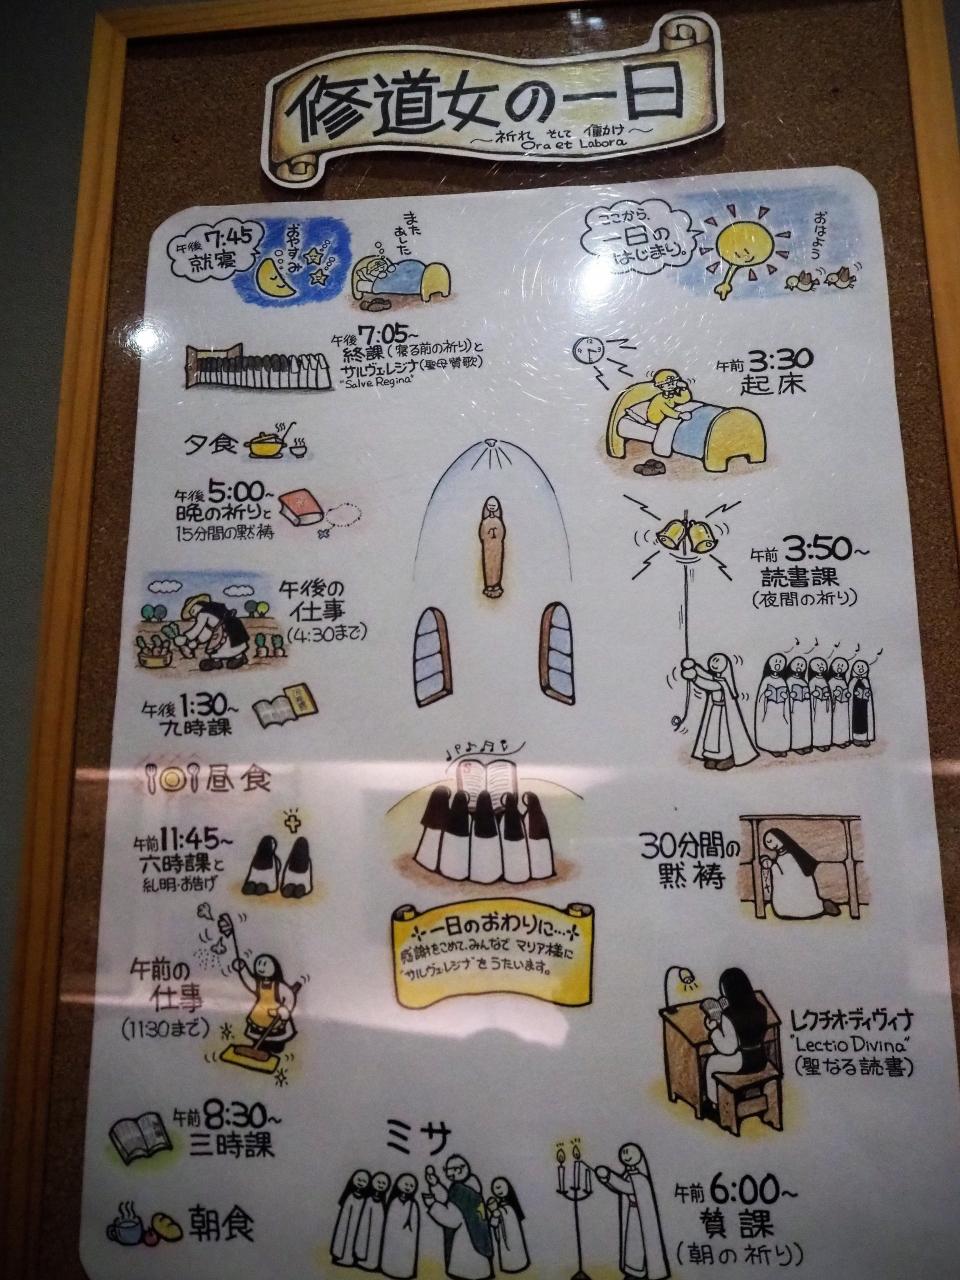 修道女の一日
～祈れ そして 働け～
Ora et Labora
ここから、
一日の
はじまり。
おはよう
午前 3:30
起床
午前 3:50～
読書課
(夜間の祈り)
30分間の
黙祷
レクチオ・ディヴィナ
"Lectio Divina"
(聖なる読書)
午前 6:00～
賛課
(朝の祈り)
ミサ
朝食
午前 8:30～
三時課
午前の
仕事
(11:30まで)
午前 11:45～
六時課と
糺明・お告げ
昼食
午後 1:30～
九時課
午後の
仕事
(4:30まで)
午後 5:00～
晩の祈りと
15分間の黙祷
夕食
午後 7:05～
終課(寝る前の祈り)と
サルヴェレジナ(聖母賛歌)
"Salve Regina"
午後 7:45
就寝
おやすみ
また
あした
一日のおわりに…
感謝をこめて、みんなで マリア様に
"サルヴェレジナ"をうたいます。